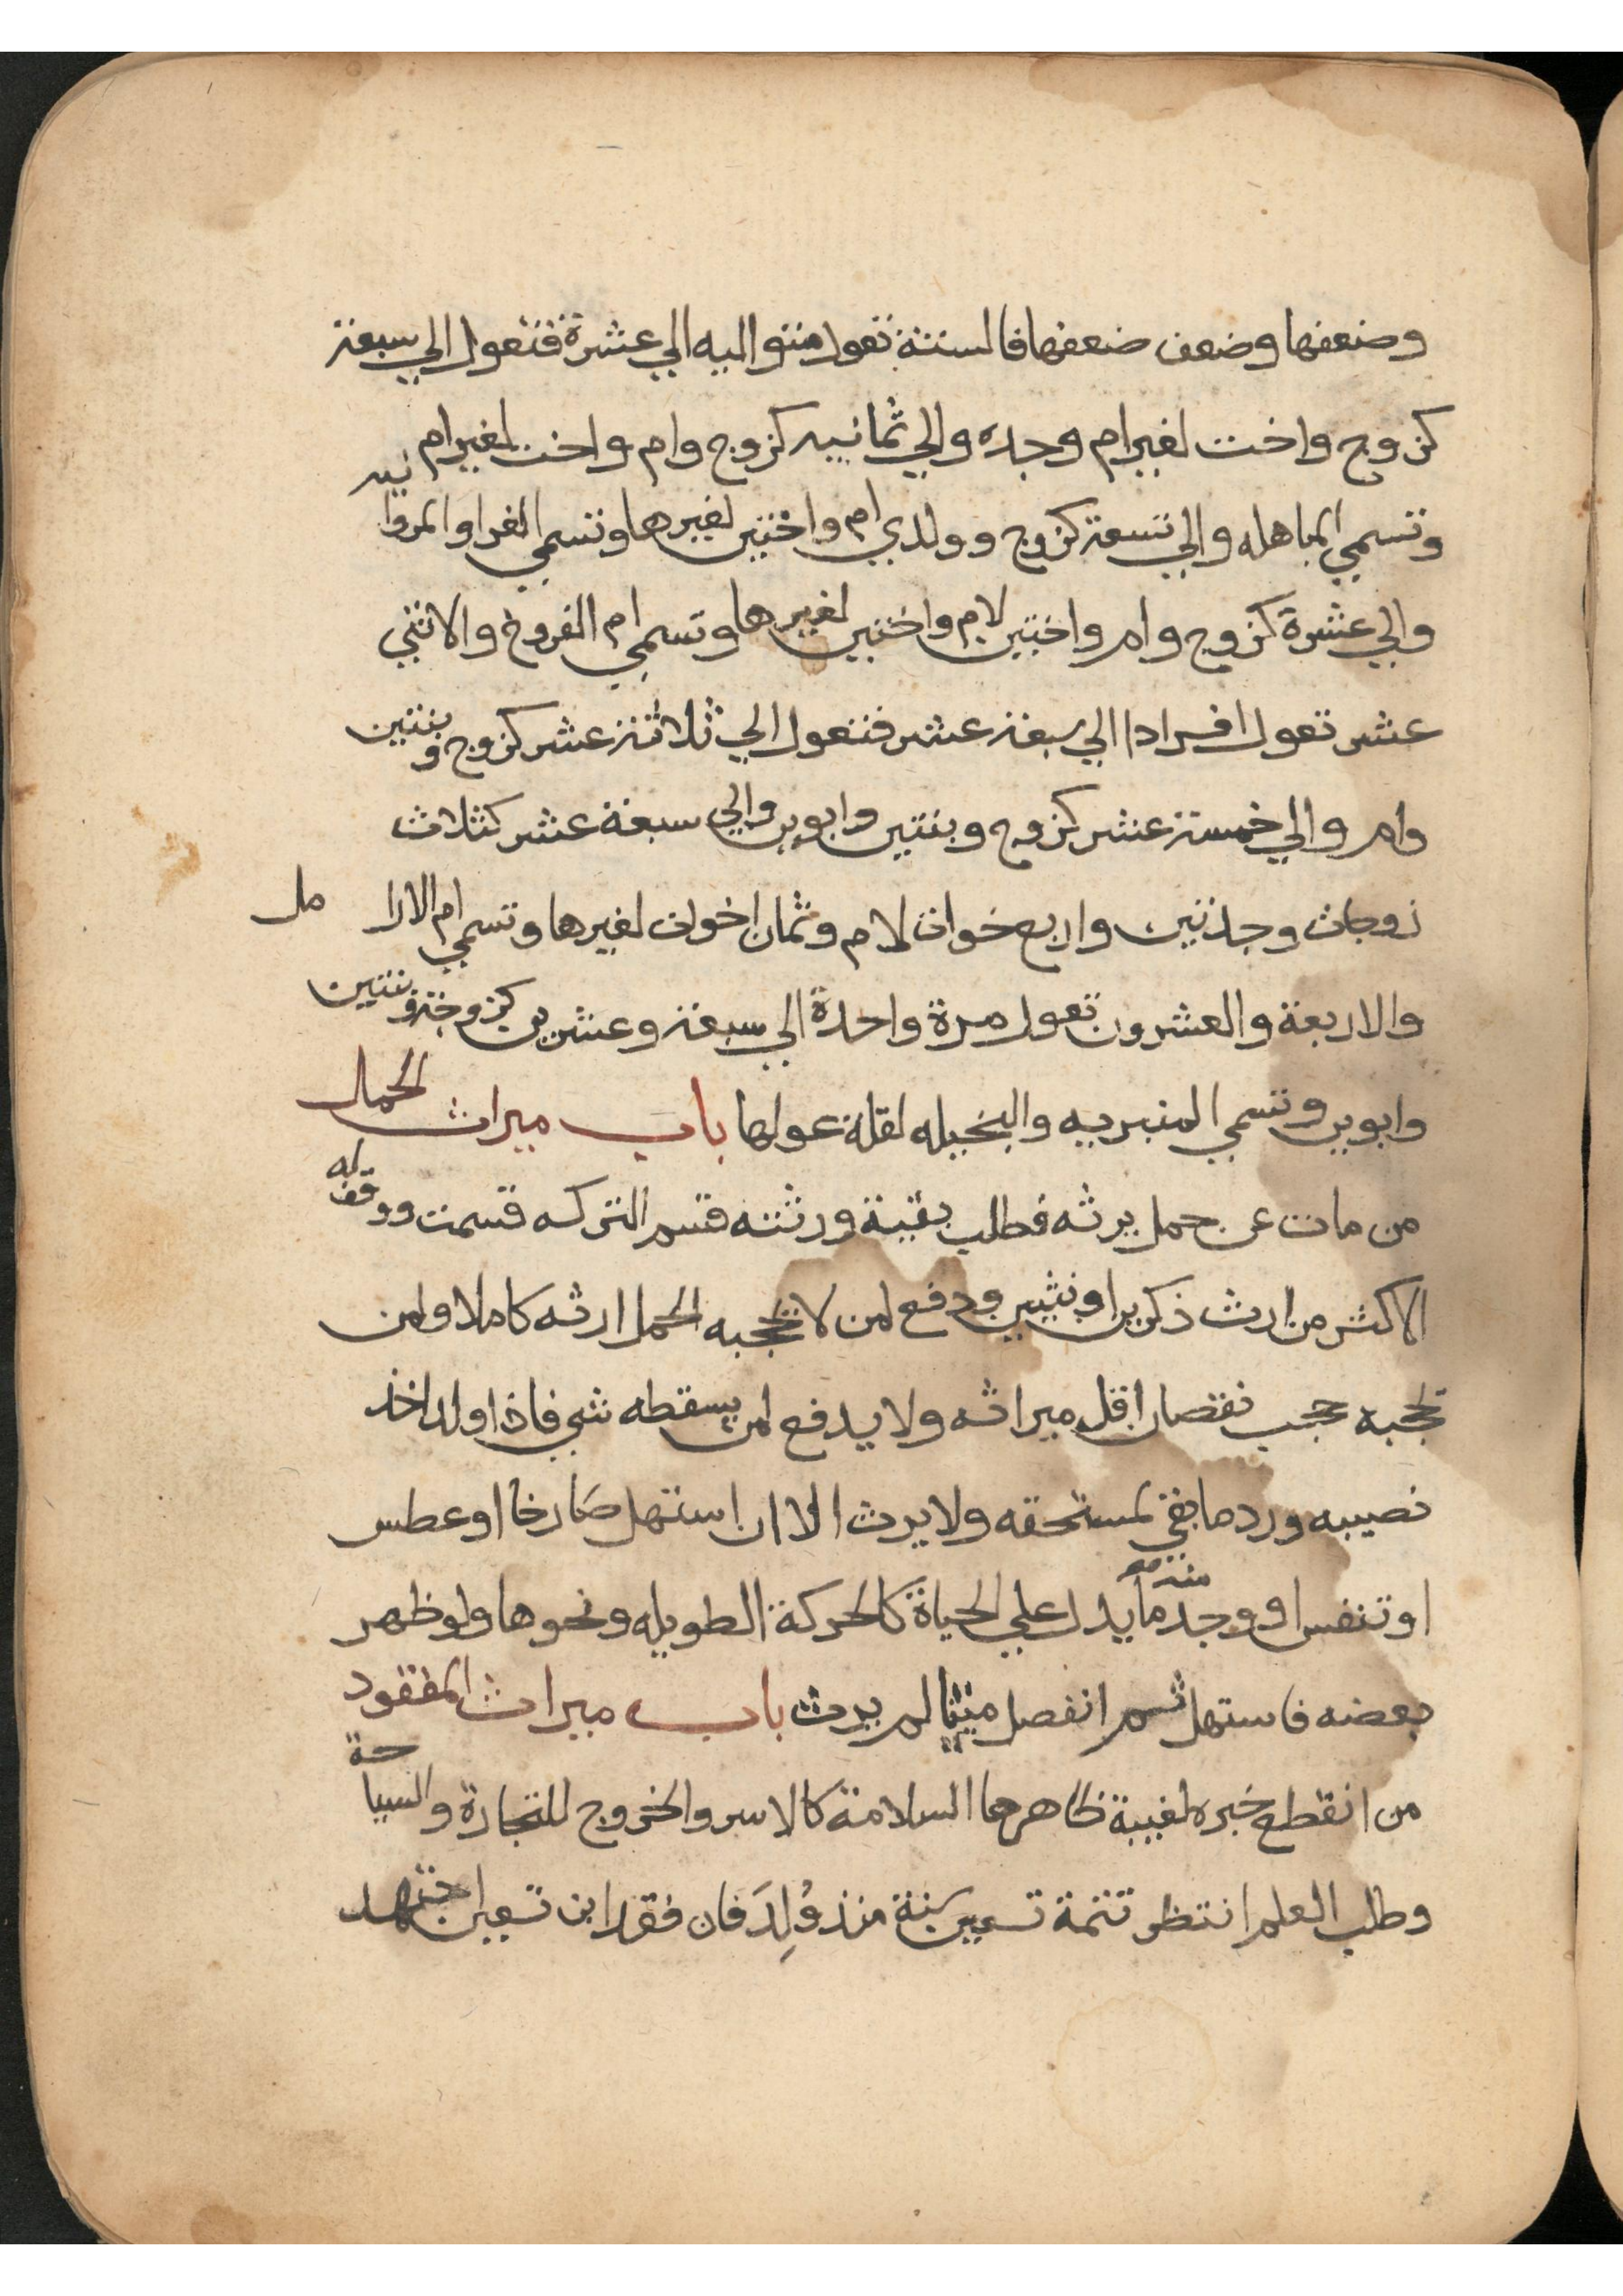 وضعفها وضعف ضعفها فالستة تعول متواليه الي عشرة فتعول الي سبعة
كزوج واخت لغير ام وجده والي ثمانيه كزوج وام واخت لغير ام
وتسمي المباهله والي تسعة كزوج وولدي ام واختين لغيرها وتسمي الغرا والمروانيه
والي عشرة كزوج وام واختين لام واختين لغيرها وتسمي ام الفروخ والاثني
عشر تعول افرادا الي سبعة عشر فتعول الي ثلاثة عشر كزوج وبنتين
وام والي خمسة عشر كزوج وبنتين وابوين والي سبعة عشر كثلاث
زوجات وجدتين واربع خوات لام وثمان اخوات لغيرها وتسمي ام الارامل
والاربعة والعشرون تعول مرة واحدة الي سبعة وعشرين كزوجة وبنتين
وابوين وتسمي المنبريه والبخيله لقلة عولها باب ميراث الحمل
من مات عن حمل يرثه فطلب بقية ورثته قسم التركه قسمت ووقف له
الاكثر من ارث ذكرين او نثيين ودفع لمن لا يحجبه الحمل ارثه كاملا ولمن
يحجبه حجب نقصان اقل ميراثه ولا يدفع لمن يسقطه شي فاذا ولد اخذ
نصيبه ورد ما بقي لمستحقه ولا يرث الا ان استهل صارخا او عطس
او تنفس او وجد منه ما يدل علي الحياة كالحركة الطويله ونحوها ولو ظهر
بعضه فاستهل ثم انفصل ميتا لم يرث باب ميراث المفقود
من انقطع خبره لغيبة ظاهرها السلامة كالاسر والخروج للتجارة والسياحة
وطلب العلم انتظر تتمة تسعين سنة منذ وُلِدَ فان فقد ابن تسعين اجتهد